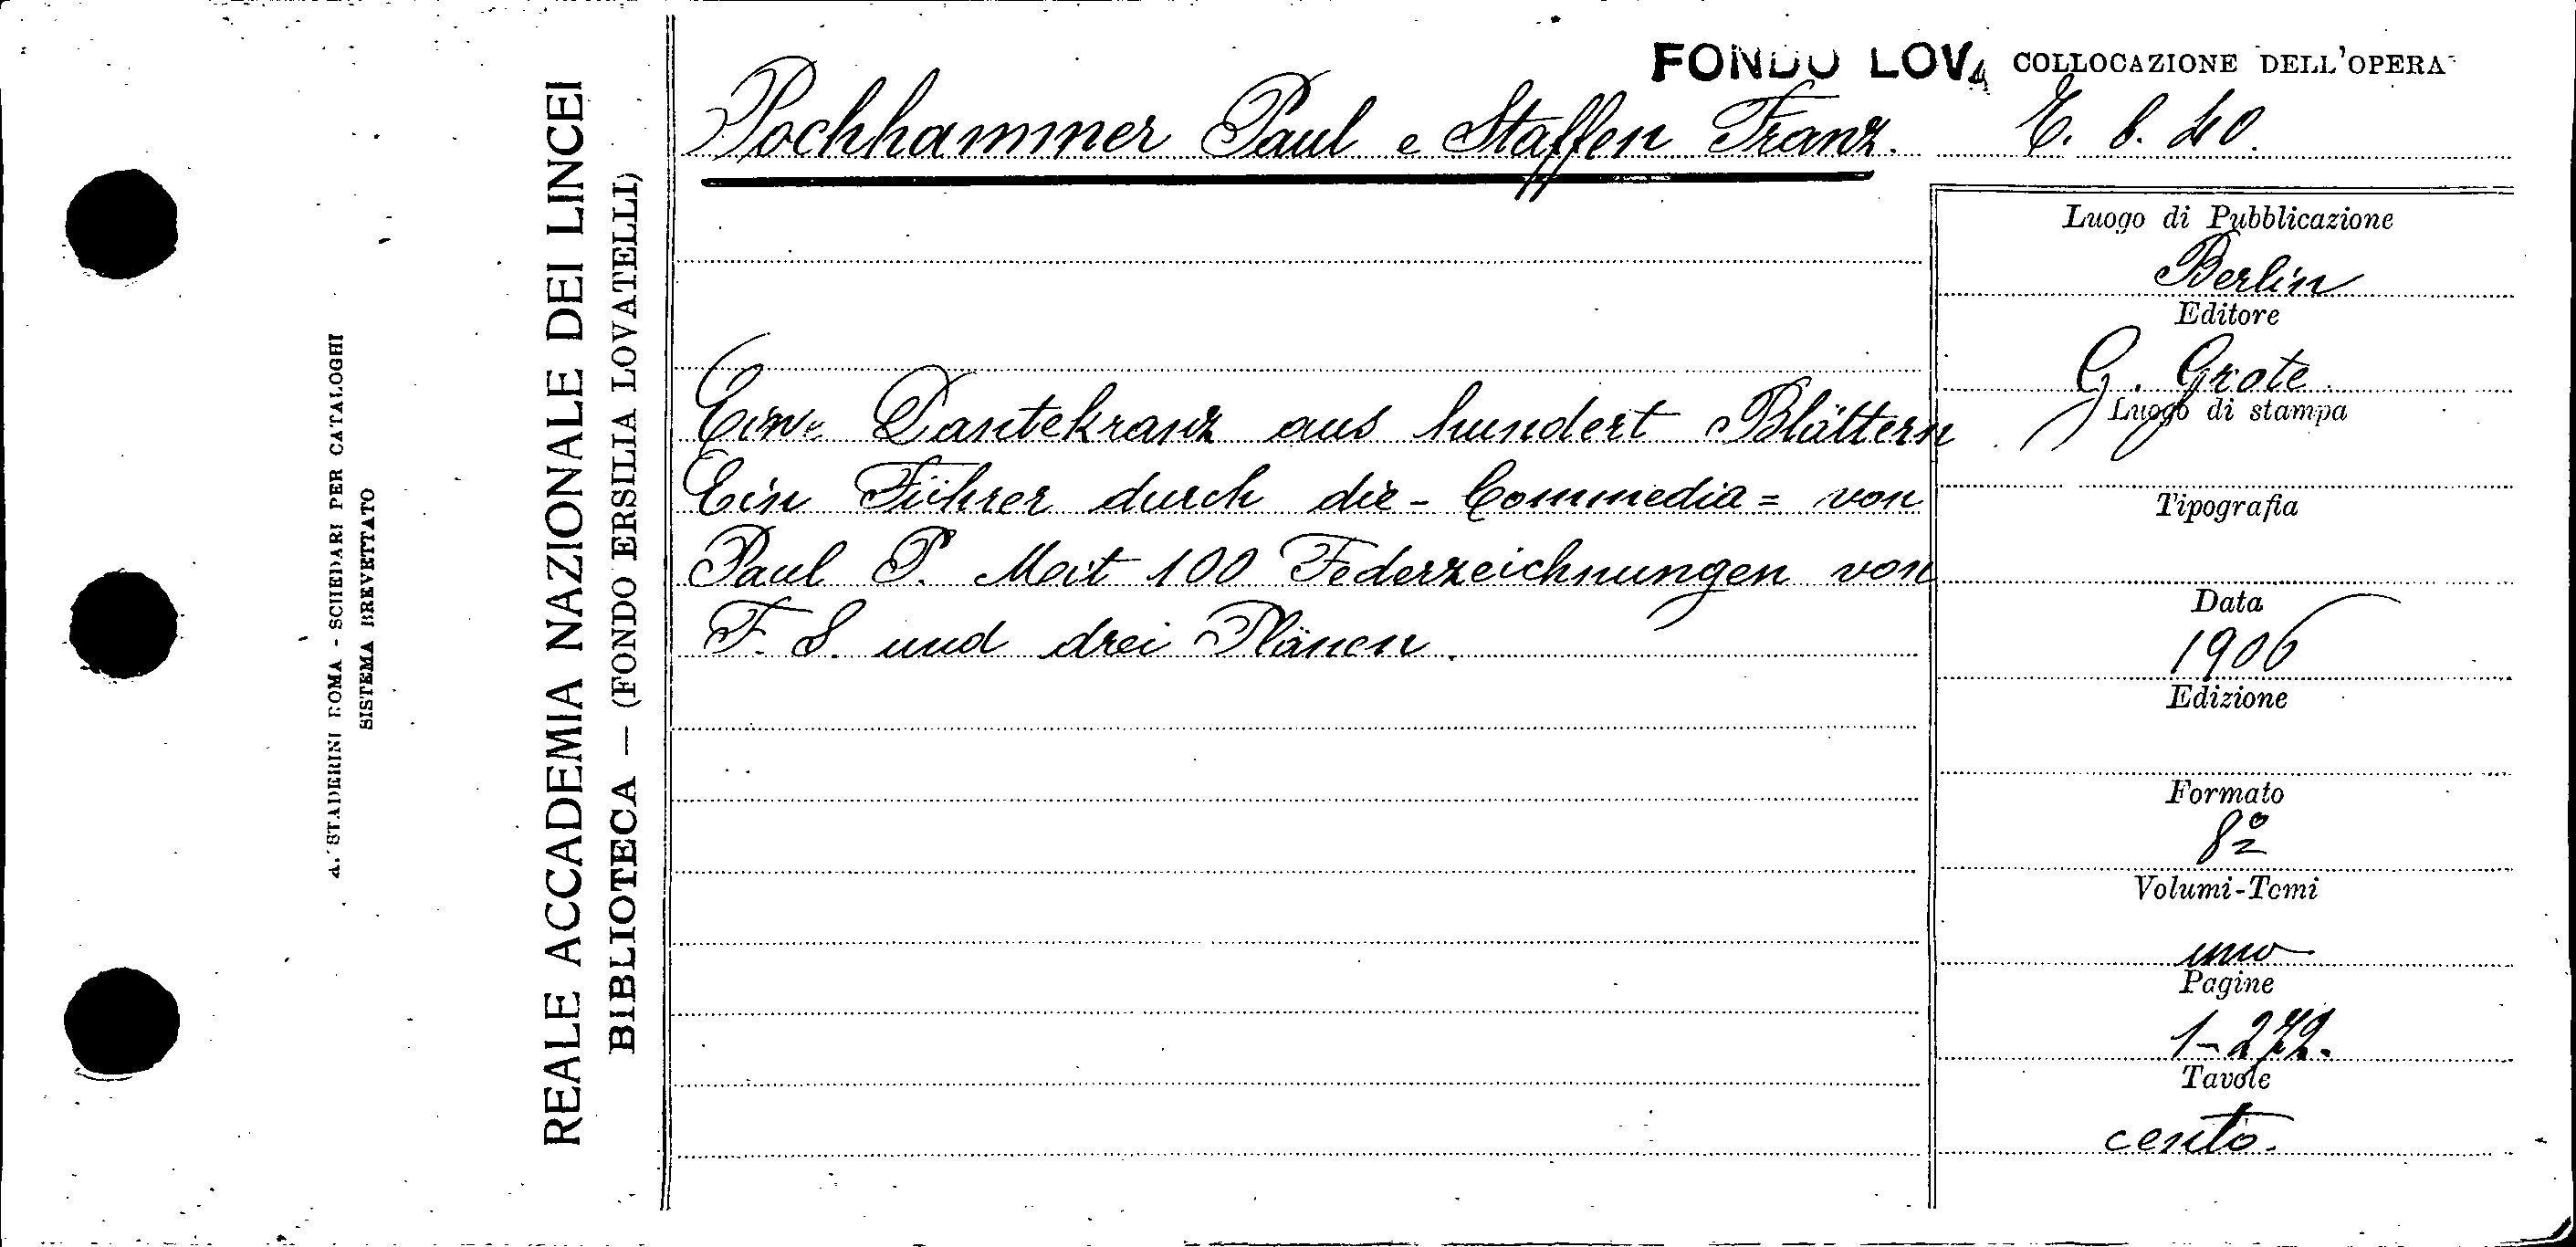 FONDO LOVA
COLLOCAZIONE DELL'OPERA
Pochhammer Paul e Staffen Franz.
E. 8. 40.
Eine Dantekranz aus hundert Blättern
Ein Führer durch die - Commedia = von
Paul P. Mit 100 Federzeichnungen von
F. S. und drei Plänen.
Luogo di Pubblicazione
Berlin
Editore
G. Grote
Luogo di stampa
Tipografia
Data
1906
Edizione
Formato
8º
Volumi-Tomi
uno
Pagine
1-272.
Tavole
cento.
REALE ACCADEMIA NAZIONALE DEI LINCEI
BIBLIOTECA — (FONDO ERSILIA LOVATELLI)
A. STADERINI ROMA - SCHEDARI PER CATALOGHI
SISTEMA BREVETTATO